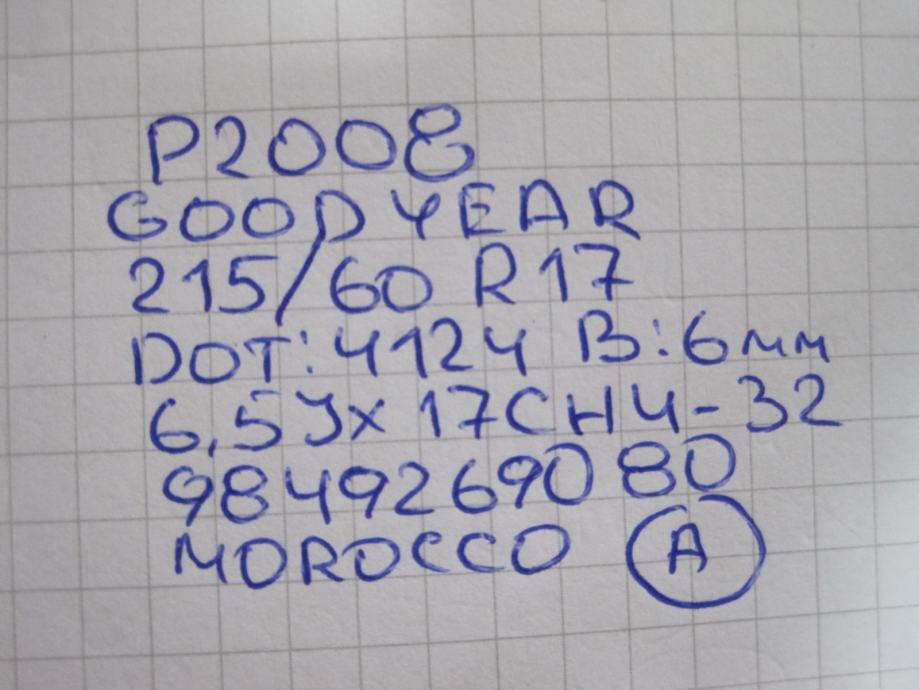 P2008
GOODYEAR
215/60 R17
DOT:4124 B:6mm
6.5Jx 17CH4-32
9849269080
MOROCCO A